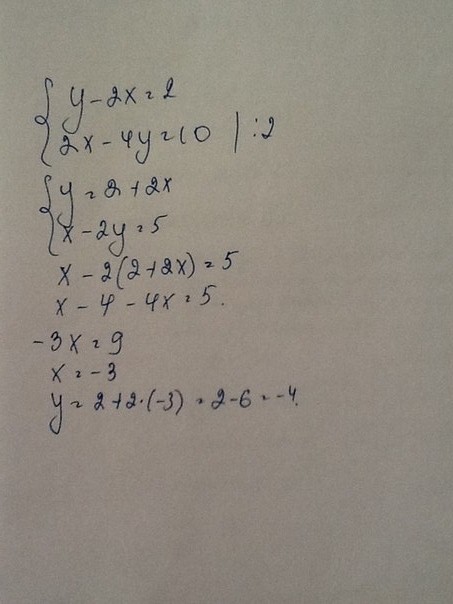 y - 2x = 2
2x - 4y = 10 | :2
y = 2 + 2x
x - 2y = 5
x - 2(2 + 2x) = 5
x - 4 - 4x = 5.
-3x = 9
x = -3
y = 2 + 2·(-3) = 2 - 6 = -4.